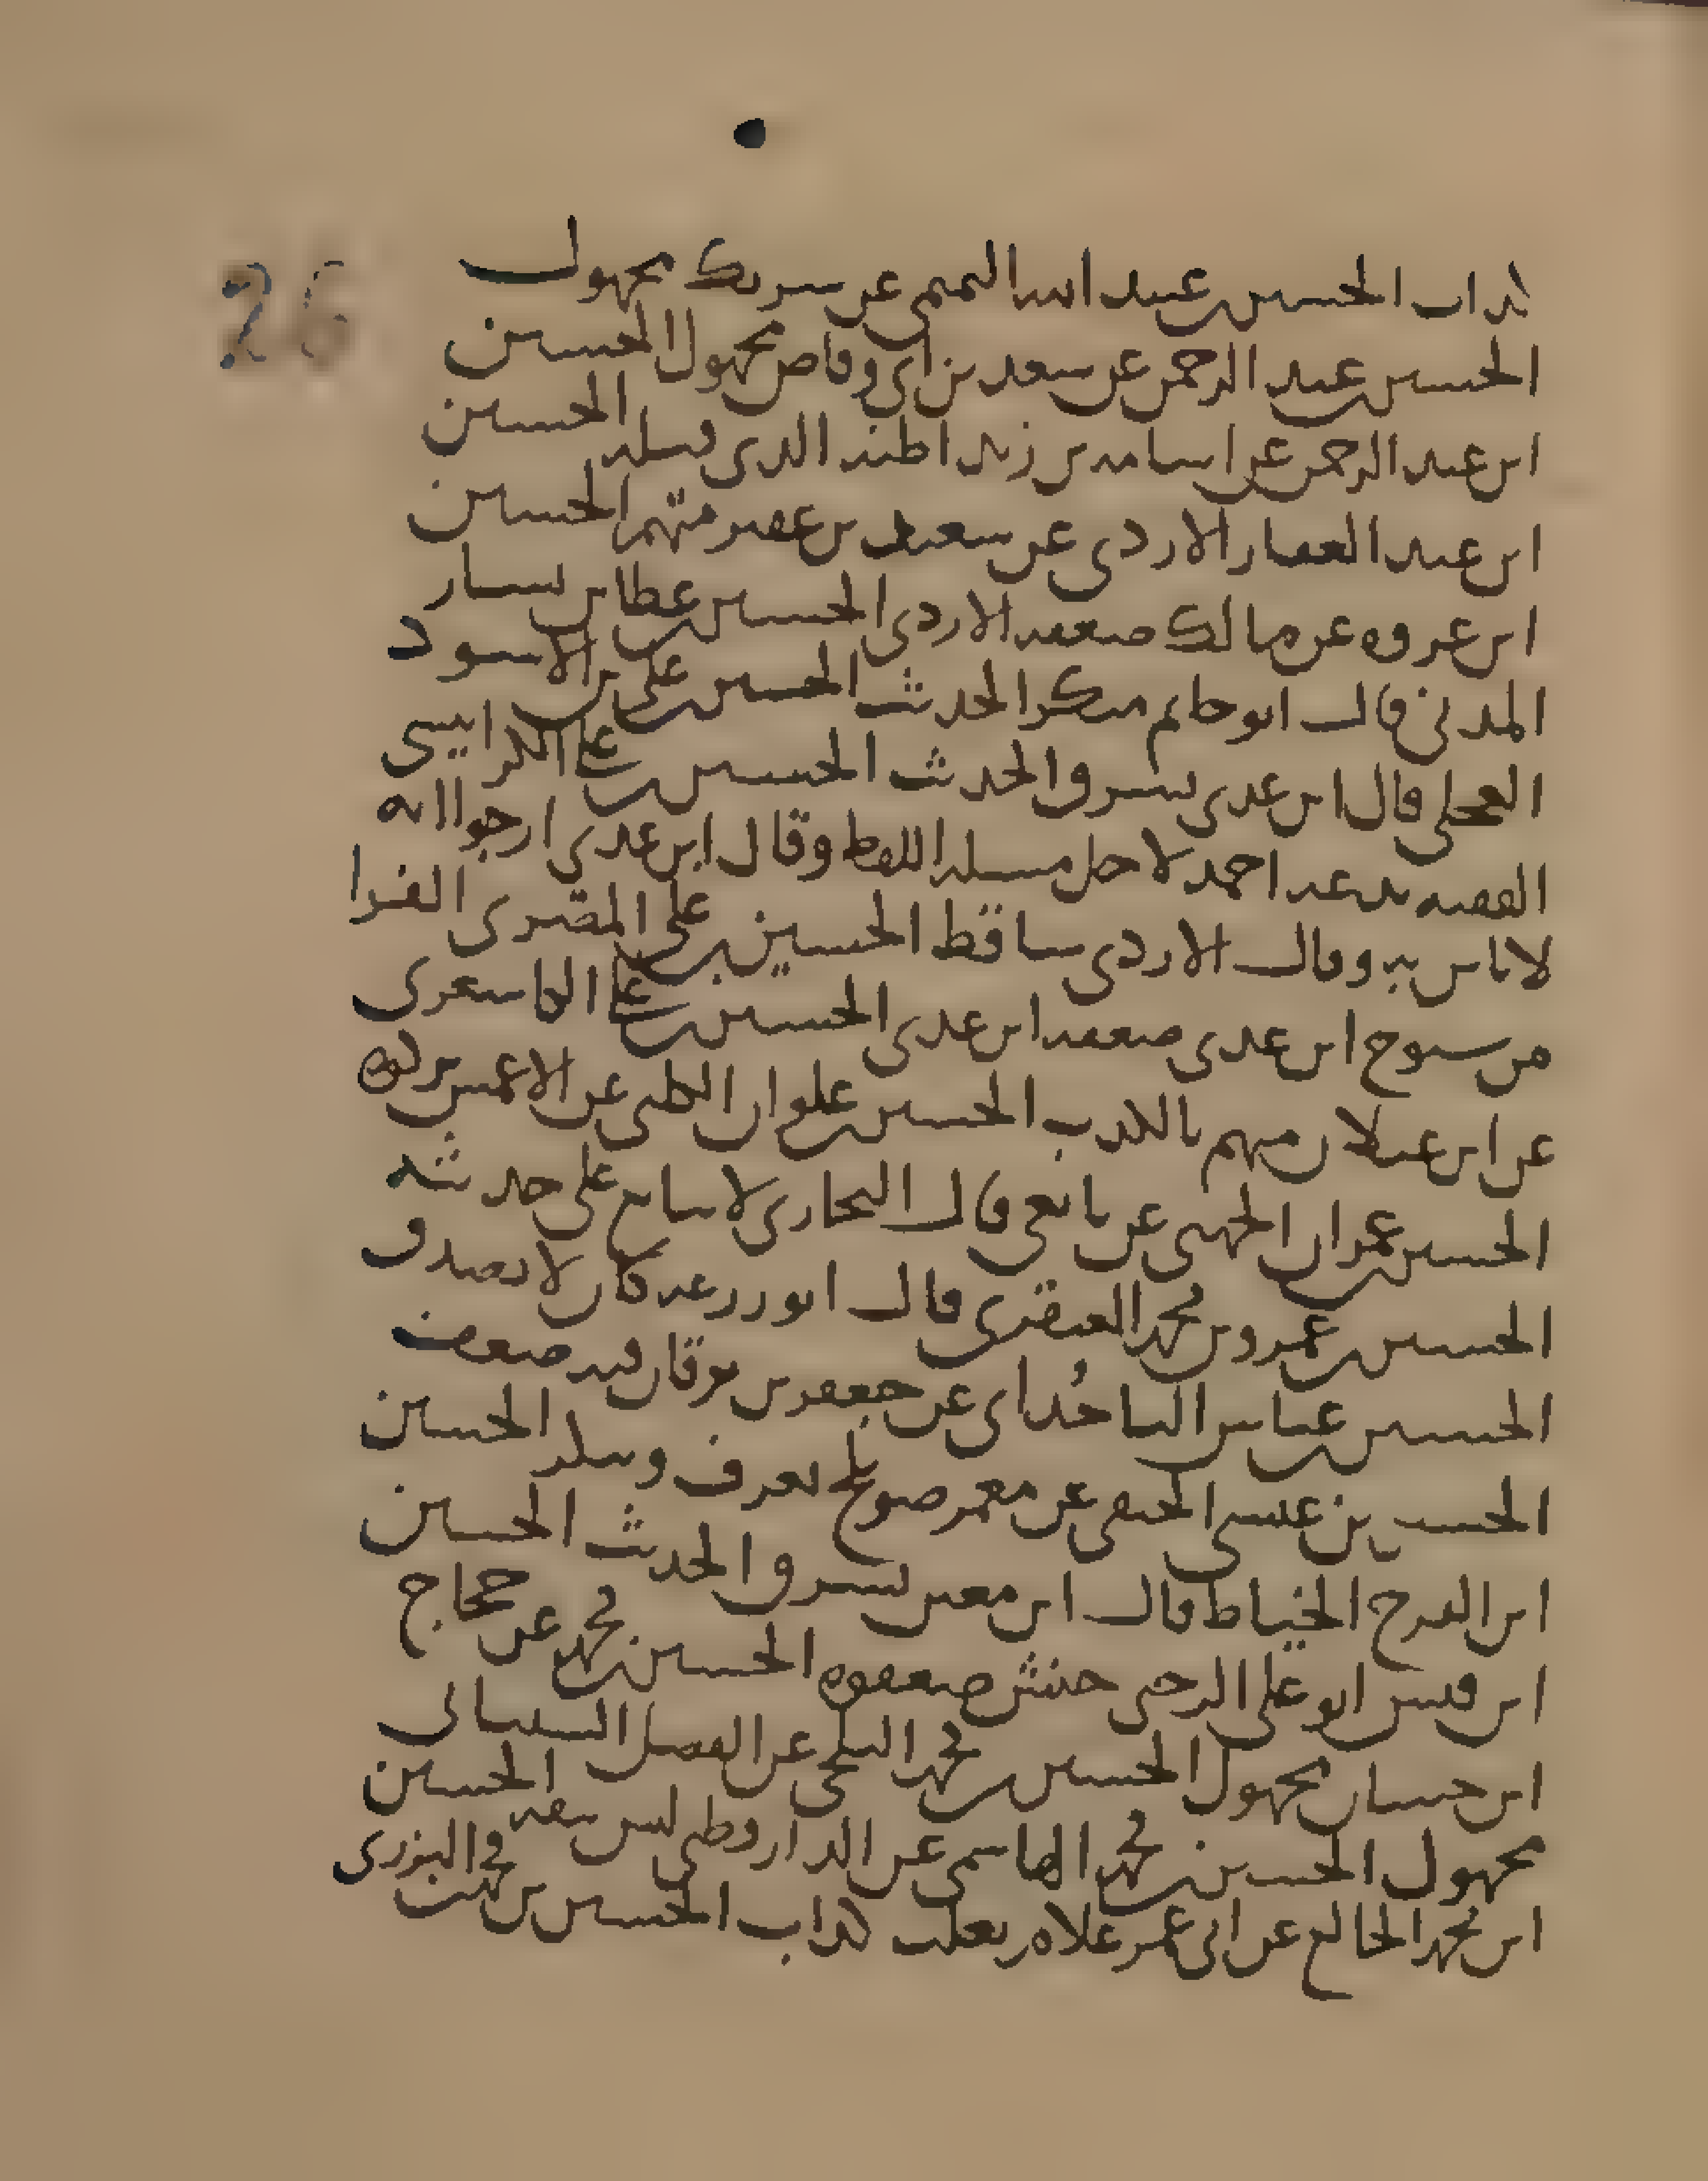 كذاب الحسين بن عبيد الله التميمي عن شريك مجهول
26
الحسين بن عبد الرحمن عن سعد بن ابي وقاص مجهول الحسين
ابن عبد الرحمن عن اسامة بن زيد اظنه الذي قبله الحسين
ابن عبد الغفار الازدي عن سعيد بن عفير متهم الحسين
ابن عروة عن مالك ضعفه الازدي الحسين بن عطا بن يسار
المدني قال ابو حاتم منكر الحديث الحسين بن علي بن الاسود
العجلي قال ابن عدي يسرق الحديث الحسين بن علي الكرابيسي
الفقيه احمد لاجل مسلة اللفظ وقال ابن عدي ارجوا انه
لا باس به وقال الازدي ساقط الحسين بن علي المقري الفرا
من شيوخ ابن عدي ضعفه ابن عدي الحسين بن علي الكاشغري
عن ابن غيلان متهم بالكذب الحسين بن علوان الكلبي عن الاعمش تركوه
الحسين بن عمران الجهني عن قال البخاري لا يتابع على حديثه
الحسين بن عمرو بن محمد العنقزي قال ابو زرعة كان لا يصدق
الحسين بن عياش الباجدائي عن جعفر بن برقان فيه ضعف
الحسين بن عيسى الحنفي عن معمر صويلح يعرف وينكر الحسين
ابن الفرج الخياط قال ابن معين يسرق الحديث الحسين
ابن قيس ابو علي الرحبي حنش ضعفوه الحسين بن محمد عن حجاج
ابن حسان مجهول الحسين بن محمد البلخي عن الفضل السيناني
مجهول الحسين بن محمد الهاشمي عن الدارقطني ليس بثقة الحسين
ابن محمد الخالع عن ابي عمر غلام ثعلب كذاب الحسين بن محمد البزري